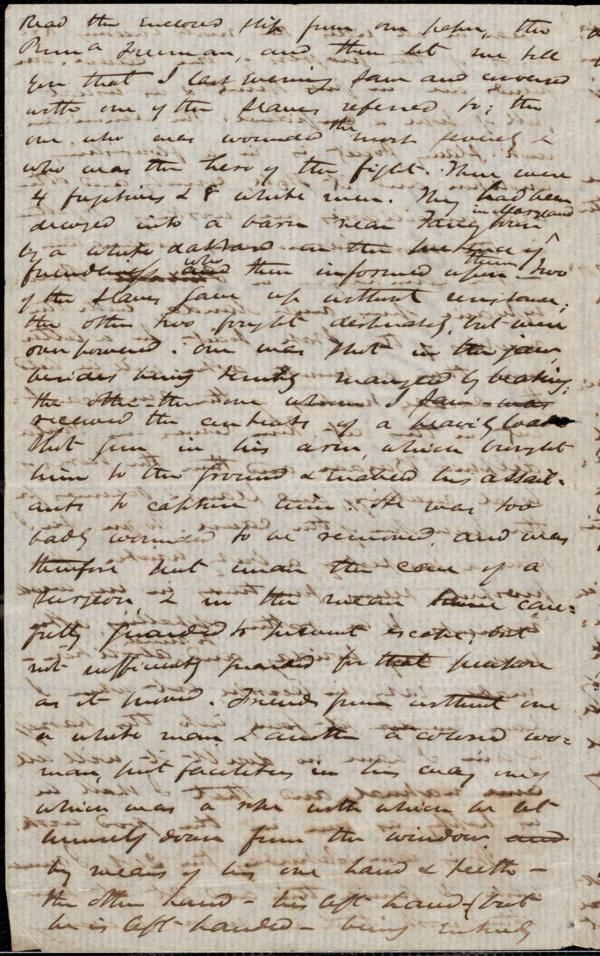 Read the enclosed slip from our paper, the
Penn a Freeman, and then let me tell
you that I last evening saw and conversed
with one of the slaves referred to; the
one who was wounded the most severely &
who was the hero of the fight. There were
4 fugitives & 8 white men. They had been
decoyed into a barn near Taneytown in Maryland
by a white dastard on the pretence of
friendliness who then informed upon them. Two
of the slaves gave up without resistance;
the other two fought desperately, but were
overpowered. One was shot in the jaw,
besides being terribly mangled by beating;
the other–the one whom I saw–
received the contents of a heavily loaded
shot gun in his arm, which brought
him to the ground & enabled his assail=
ants to capture him. He was too
badly wounded to be removed, and was
therefore put under the care of a
surgeon, & in the mean time care=
fully guarded to prevent escape; but
not sufficiently guarded for that purpose
as it proved. Friends from without one
a white man & another a colored wo=
man, put facilities in his way one of
which was a rope with which he let
himself down from the window
by means of his one hand & teeth –
the other hand – his left hand – (but
he is left-handed – being entirely